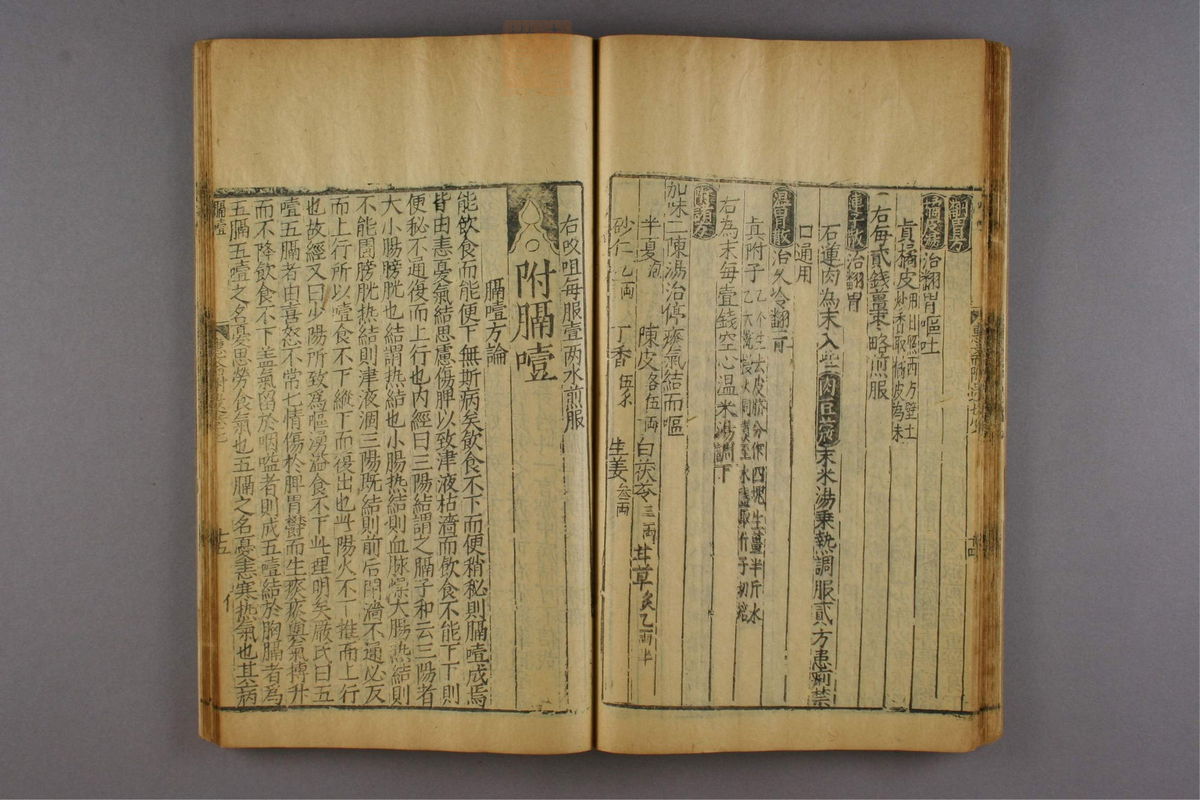 翻胃方
橘皮湯 治翻胃嘔吐
真橘皮 用日照西方壁土炒香取橘皮為末
右每貳錢薑棗略煎服
蓮子散 治翻胃
石蓮肉為末入些肉豆蔻末米湯乗熱調服貳方患痢禁
口通用
温胃散 治久冷翻胃
真附子 乙个生去皮臍分作四塊生薑半斤水
右為末每壹錢空心温米湯調下
附諸方
加味二陳湯治停痰氣結而嘔
半夏 陳皮各伍両 白茯苓三両 甘草炙乙両半
砂仁乙両 丁香伍分 生姜叁両
右㕮咀每服壹两水煎服
附膈噎
膈噎方論
能飲食而能便下無斯病矣飲食不下而便稍秘則膈噎成焉
皆由恚憂氣結思慮傷脾以致津液枯濇而飲食不能下下則
便秘不通復而上行也内經曰三陽結謂之膈子和云三陽者
大小腸膀胱也結謂热結也小腸热結則血脉燥大腸热結則
不能圊膀胱热結則津液涸三陽既結則前后閉濇不通必反
而上行所以噎食不下縱下而復出也此陽火不下推而上行
也故經又曰少陽所致為嘔湧溢食不下此理明矣嚴氏曰五
噎五膈者由喜怒不常七情傷於脾胃鬱而生痰痰與氣搏升
而不降飲食不下盖氣留於咽嗌者則成五噎結於胸膈者為
五膈五噎之名憂思勞食氣也五膈之名憂恚寒热氣也其病
膈噎
十五